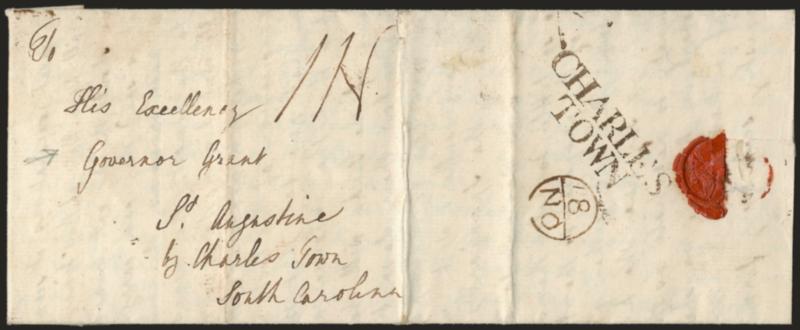 To
His Excellency
Governor Grant
St. Augustine
by Charles Town
South Carolina
CHARLES
TOWN
8
NO